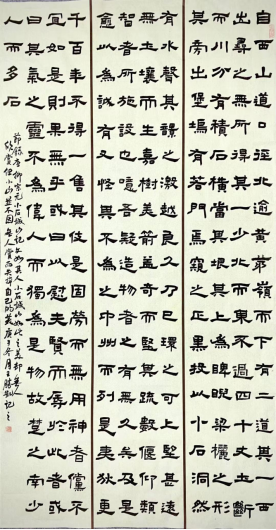 自西山道口徑北逾黃茅嶺而下有二道其一西
出尋之無所得其一少北而東不過四十丈土斷
而川分有積石橫當其垠其上為睥睨梁欐之形
其旁出堡塢有若門焉窺之正黑投以小石洞然
有水聲其響之激越良久乃已環之可上望甚遠
無土壤而生嘉樹美箭益奇而堅其疏數偃仰類
智者所施設也噫吾疑造物者之有無久矣及是
愈以為誠有又怪其不為之中州而列是夷狄更
千百年不得一售其伎是固勞而無用神者儻不
宜如是則果無乎或曰以慰夫賢而辱於此者或
曰其氣之靈不為偉人而獨為是物故楚之南少
人而多石
節錄唐柳宗元小石城山記